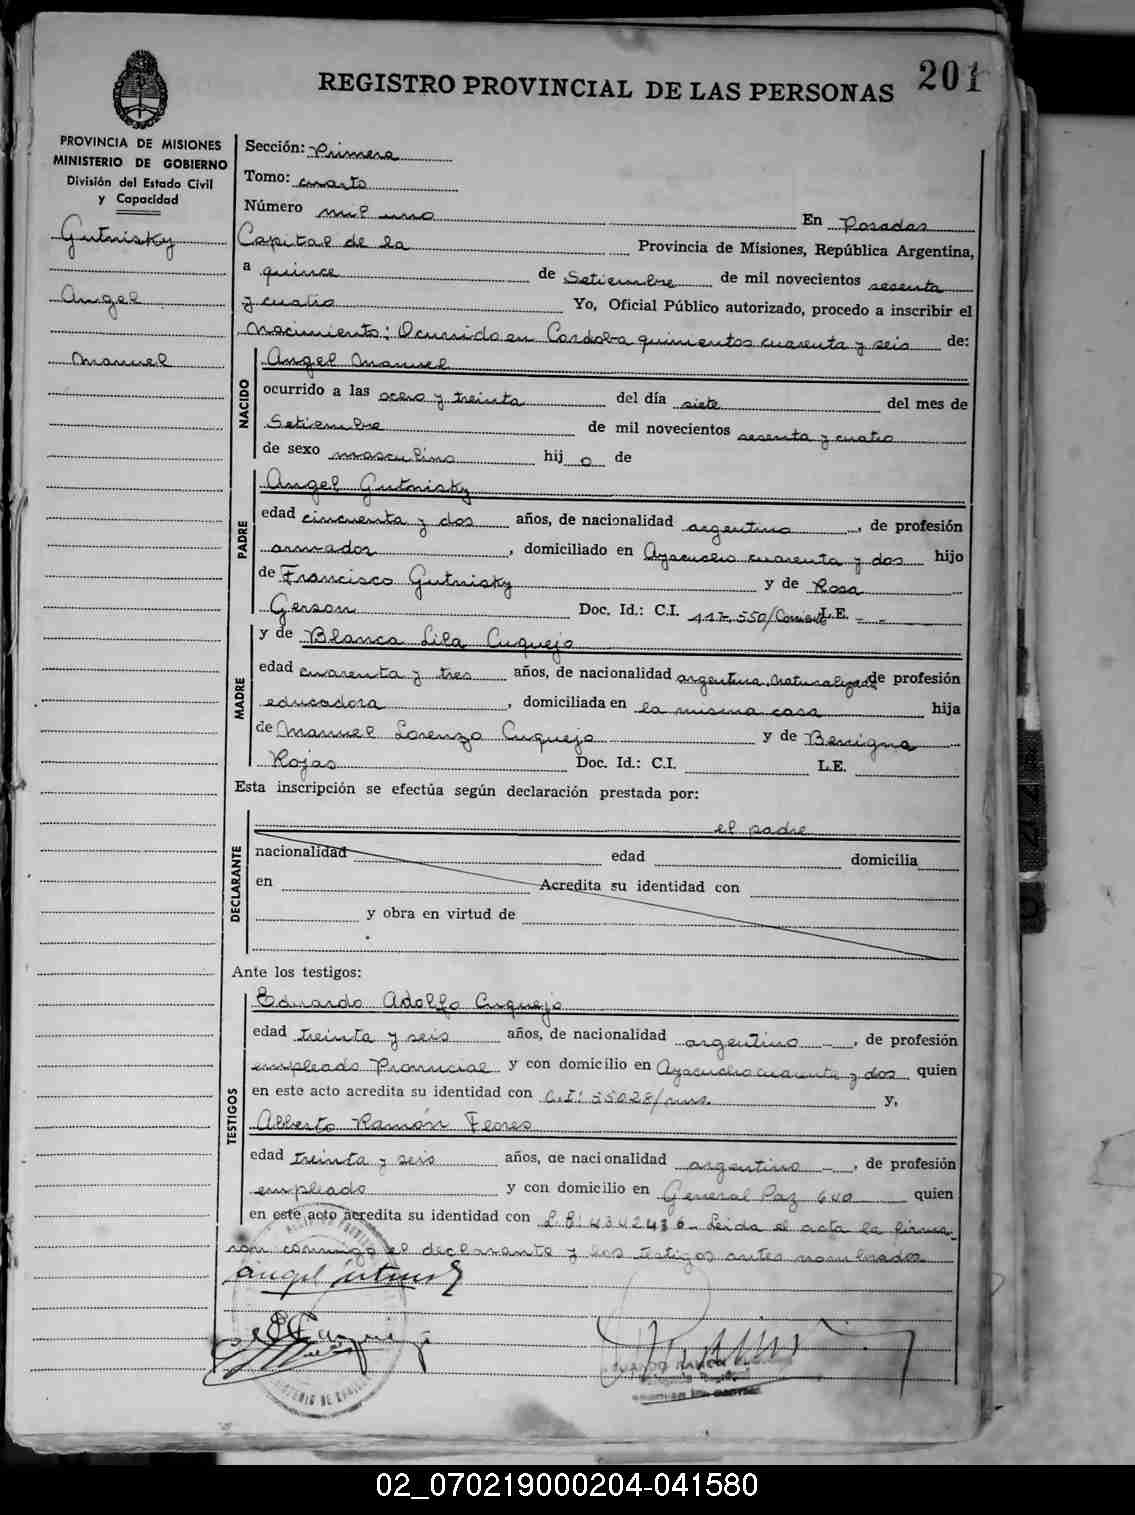 REGISTRO PROVINCIAL DE LAS PERSONAS
201
PROVINCIA DE MISIONES
MINISTERIO DE GOBIERNO
División del Estado Civil
y Capacidad
Gutnisky
Angel
Manuel
Sección: Primera
Tomo: cuarto
Número mil uno En Posadas
Capital de la Provincia de Misiones, República Argentina,
a quince de Setiembre de mil novecientos sesenta
y cuatro Yo, Oficial Público autorizado, procedo a inscribir el
Nacimiento: Ocurrido en Cordoba quinientos cuarenta y seis de:
NACIDO
Angel Manuel
ocurrido a las ocero y treinta del día siete del mes de
Setiembre de mil novecientos sesenta y cuatro
de sexo masculino hij o de
PADRE
Angel Gutnisky
edad cincuenta y dos años, de nacionalidad argentino, de profesión
armador, domiciliado en Ayacucho cuarenta y dos hijo
de Francisco Gutnisky y de Rosa
Gerson Doc. Id.: C.I. 117.550/Corrientes L.E. - -
MADRE
y de Blanca Lila Cuquejo
edad cuarenta y tres años, de nacionalidad argentina, naturalizada de profesión
educadora, domiciliada en la misma casa hija
de Manuel Lorenzo Cuquejo y de Benigna
Rojas Doc. Id.: C.I. L.E.
Esta inscripción se efectúa según declaración prestada por:
DECLARANTE
el padre
nacionalidad edad domicilia
en Acredita su identidad con
y obra en virtud de
Ante los testigos:
TESTIGOS
Eduardo Adolfo Cuquejo
edad treinta y seis años, de nacionalidad argentino -, de profesión
empleado Provincial y con domicilio en Ayacucho cuarenta y dos quien
en este acto acredita su identidad con C.I: 55028/mns. y,
Alberto Ramón Flores
edad treinta y seis años, de nacionalidad argentino -, de profesión
empleado y con domicilio en General Paz 640 quien
en este acto acredita su identidad con L.E: 4342436 - Leida el acta la firma-
ron conmigo el declarante y los testigos antes nombrados
Angel Gutnisky
02_070219000204-041580